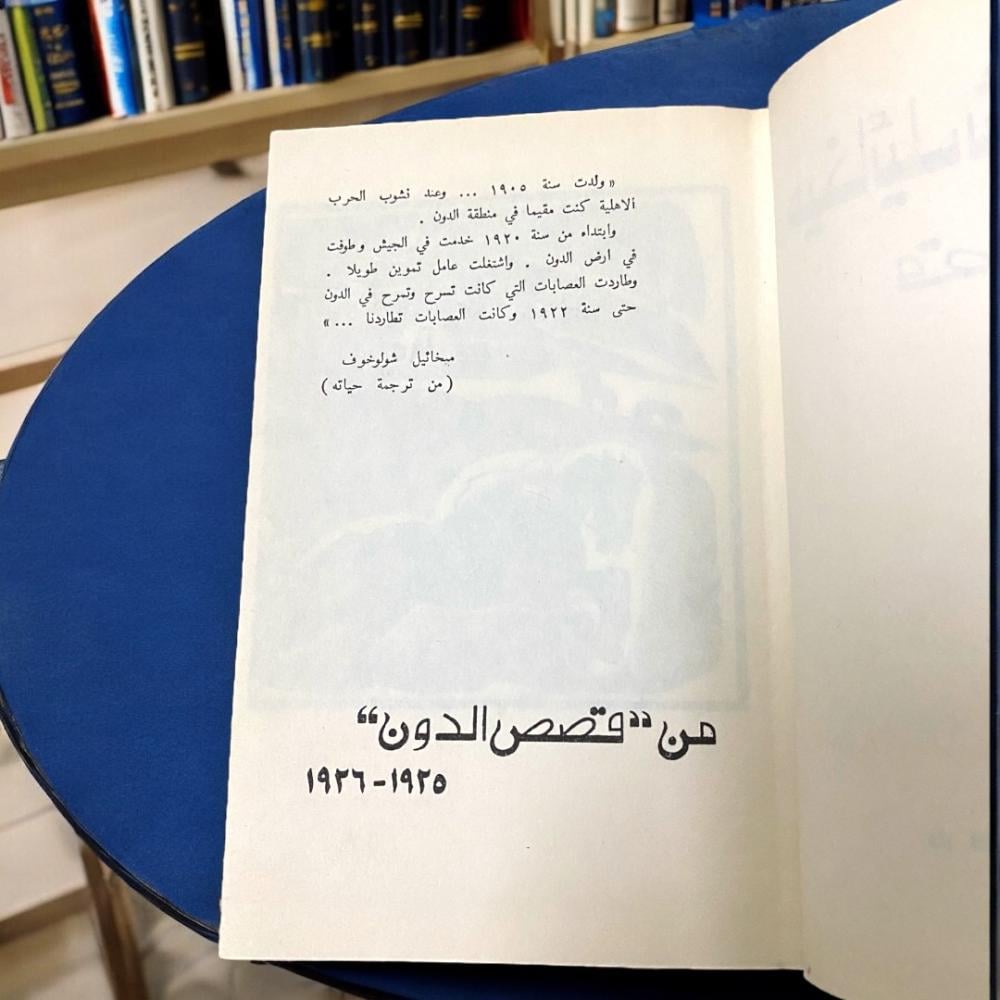 « ولدت سنة ١٩٠٥ ... وعند نشوب الحرب
الاهلية كنت مقيما في منطقة الدون .
وابتداء من سنة ١٩٢٠ خدمت في الجيش وطوفت
في ارض الدون . واشتغلت عامل تموين طويلا .
وطاردت العصابات التي كانت تسرح وتمرح في الدون
حتى سنة ١٩٢٢ وكانت العصابات تطاردنا ... »
ميخائيل شولوخوف
( من ترجمة حياته )
من “قصص الدون”
١٩٢٥-١٩٢٦